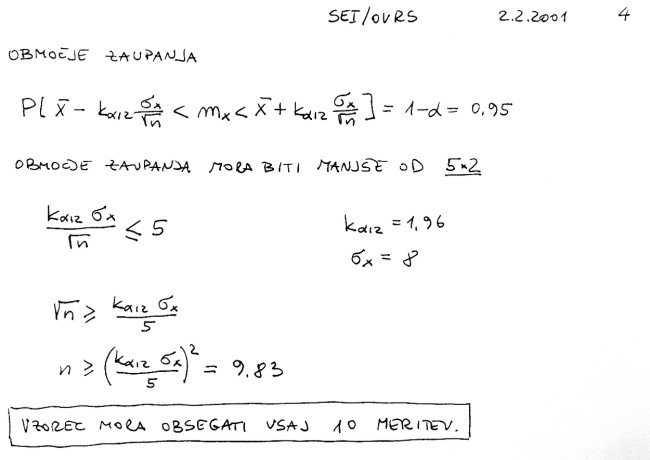 SEI/OVRS 2.2.2001 4
OBMOČJE ZAUPANJA
P[ x̄ - kα/2 σx/√n < mx < x̄ + kα/2 σx/√n ] = 1-α = 0,95
OBMOČJE ZAUPANJA MORA BITI MANJŠE OD 5*2
kα/2 σx/√n ≤ 5 kα/2 = 1,96
σx = 8
√n ≥ kα/2 σx/5
n ≥ (kα/2 σx/5)² = 9.83
VZOREC MORA OBSEGATI VSAJ 10 MERITEV.